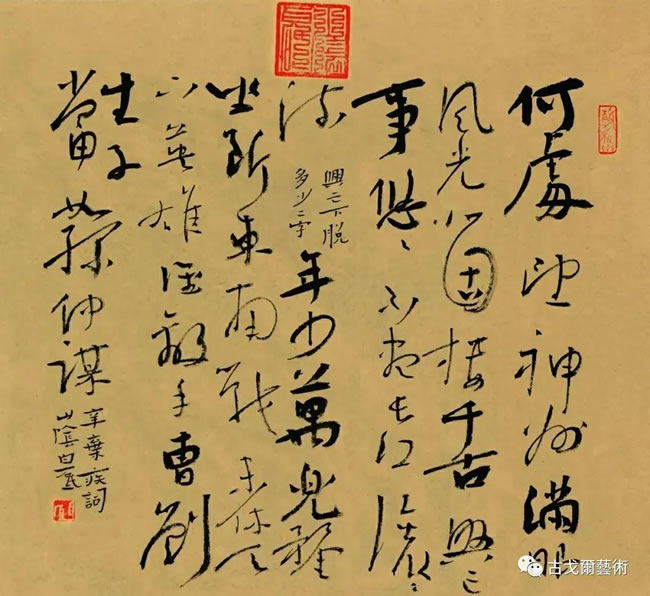 何處望神州滿眼
風光北固樓千古興亡
事悠〻不盡長江滾〻
流
興亡下脫
多少二字
年少萬兜鍪
坐斷東南戰未休天
下英雄誰敵手曹劉
生子
當如孫仲謀
辛棄疾詞
山陰白砥
古戈爾藝術